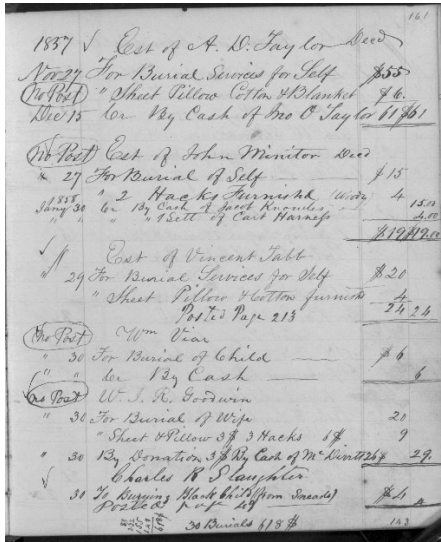 161
1857 ✓ Est of A. D. Taylor Decd
Nov 27 For Burial Services for Self $55
(no Post) " Sheet Pillow Cotton & Blanket $6.
Dec 15 Cr By Cash of Jno O Taylor 61 $61
(no Post) Est of John Minitor Decd
" 27 For Burial of Self $15
" 2 Hacks Furnishd 4
1858 Jany 30 Cr By Cash of Jacob Knowles 15.00
" " " " 1 Sett of Cart Harness 4.00
$19 $19.00
✓ Est of Vincent Tabb
" 29 For Burial Services for Self $20
" Sheet Pillow & Cotton furnish 4
Posted Page 213 24 24
(no Post) Wm Viar
" 30 For Burial of Child $6
" " Cr By Cash 6
(no Post) W. J. R. Goodwin
" 30 For Burial of Wife 20
" Sheet & Pillow 3$ 3 Hacks 6$ 9
" 30 By Donation 3$ By Cash of Mc 26$ 29.
✓ Charles R Slaughter
30 To Burying Black Child (from Sneads) $4
Posted
30 Burials 618$ 143